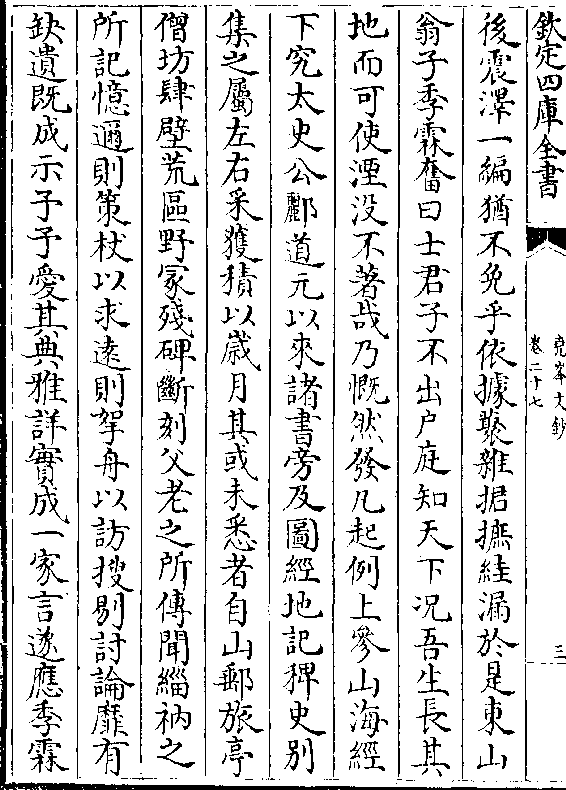 欽定四庫全書
堯峯文鈔
卷二十七
三
後震澤一編猶不免乎依據叢雜掎摭絓漏於是東山
翁子季霖奮曰士君子不出户庭知天下况吾生長其
地而可使湮没不著哉乃慨然發凡起例上參山海經
下究太史公酈道元以來諸書旁及圖經地記稗史别
集之屬左右采獲積以歲月其或未悉者自山郵旅亭
僧坊肆壁荒區野冢殘碑斷刻父老之所傳聞緇衲之
所記憶邇則策杖以求遠則拏舟以訪搜剔討論靡有
缺遺既成示予予愛其典雅詳實成一家言遂應季霖